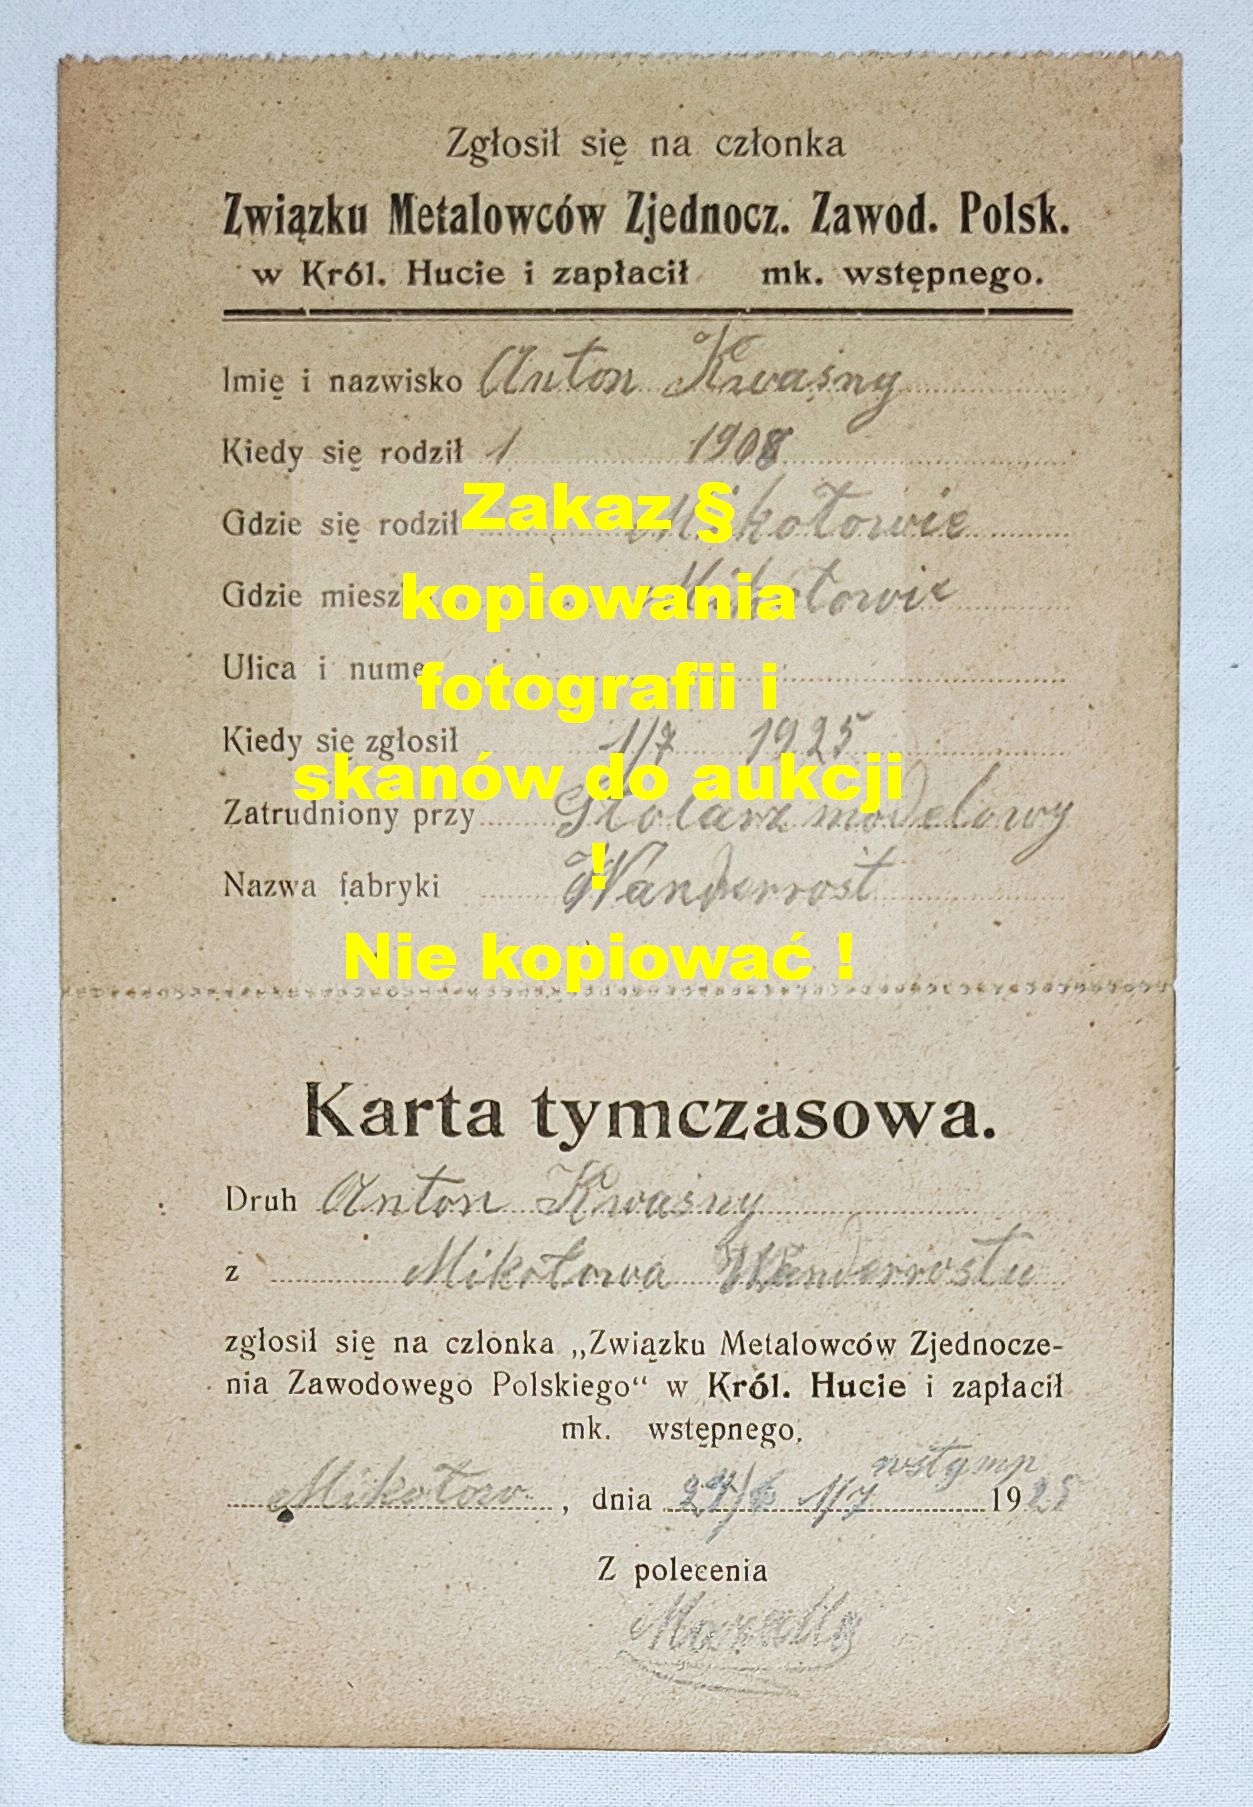 Zgłosił się na członka
Związku Metalowców Zjednocz. Zawod. Polsk.
w Król. Hucie i zapłacił mk. wstępnego.
Imię i nazwisko Anton Kwaśny
Kiedy się rodził 1 1908
Gdzie się rodził Mikołowie
Zakaz §
Gdzie miesz Mikołowie
kopiowania
Ulica i nume
fotografii i
Kiedy się zgłosił 1/7 1925
skanów do aukcji
Zatrudniony przy Stolarz modelowy
!
Nazwa fabryki Wanderrost
Nie kopiować !
Karta tymczasowa.
Druh Anton Kwaśny
z Mikołowa Wanderrostu
zgłosił się na członka „Związku Metalowców Zjednocze-
nia Zawodowego Polskiego“ w Król. Hucie i zapłacił
mk. wstępnego.
Mikołow, dnia 1/7 1925
Z polecenia